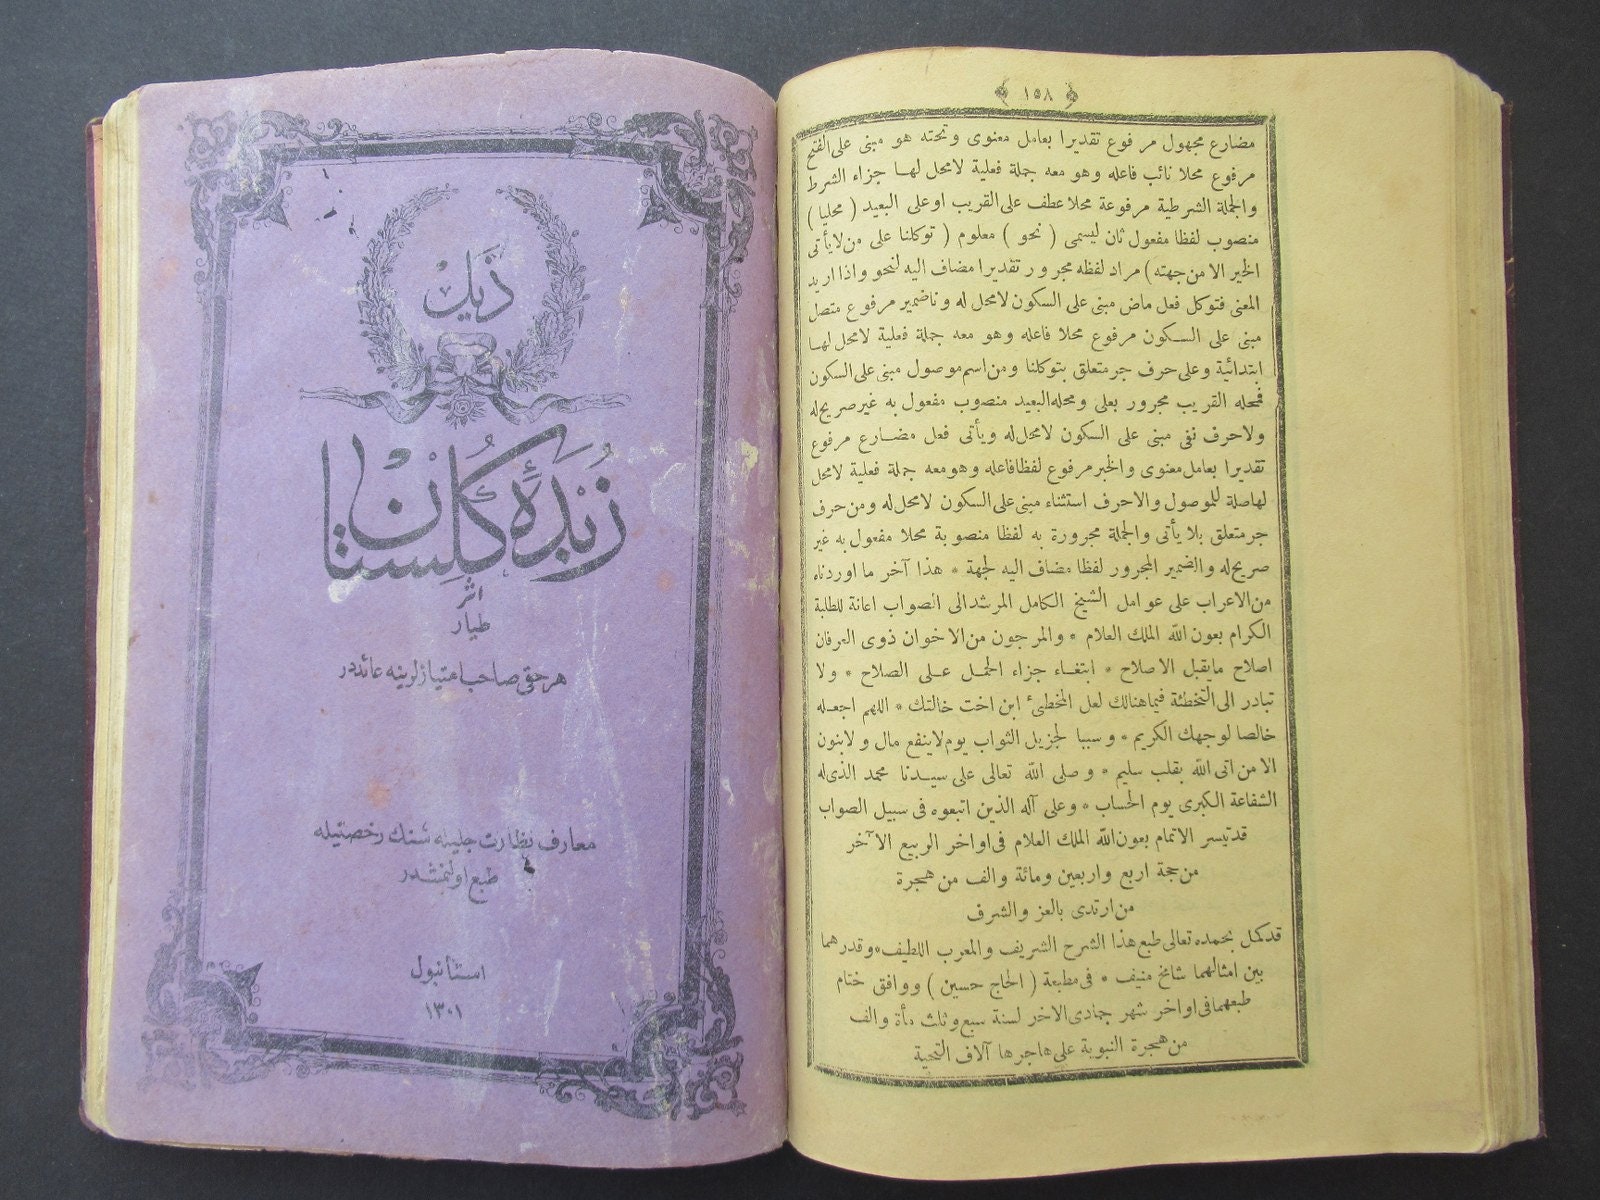 ١٥٨
مضارع مجهول مرفوع تقديرا بعامل معنوى وتحته هو مبنى على الفتح
مرفوع محلا نائب فاعله وهو معه جملة فعلية لامحل لها جزاء الشرط
والجملة الشرطية مرفوعة محلا عطف على القريب اوعلى البعيد ( محليا )
منصوب لفظا مفعول ثان ليسمى ( نحو ) معلوم ( توكلنا على من لايأتى
الخير الا من جهته ) مراد لفظه مجرور تقديرا مضاف اليه لنحو واذا اريد
المعنى فتوكل فعل ماض مبنى على السكون لامحل له وناضمير مرفوع متصل
مبنى على السكون مرفوع محلا فاعله وهو معه جملة فعلية لامحل لها
ابتدائية وعلى حرف جر متعلق بتوكلنا ومن اسم موصول مبنى على السكون
فمحله القريب مجرور بعلى ومحله البعيد منصوب مفعول به غير صريح له
ولاحرف نفى مبنى على السكون لامحل له ويأتى فعل مضارع مرفوع
تقديرا بعامل معنوى والخبر مرفوع لفظا فاعله وهو معه جملة فعلية لامحل
لها صلة للموصول والاحرف استثناء مبنى على السكون لامحل له ومن حرف
جر متعلق بلا يأتى والجملة مجرورة به لفظا منصوبة محلا مفعول به غير
صريح له والضمير المجرور لفظا مضاف اليه لجهة * هذا آخر ما اوردناه
من الاعراب على عوامل الشيخ الكامل المرشد الى الصواب اعانة للطلبة
الكرام بعون الله الملك العلام * والمرجون من الاخوان ذوى العرفان
اصلاح مايقبل الاصلاح * ابتغاء جزاء الحمل على الصلاح * ولا
تبادر الى التخطئة فيما هنالك لعل المخطئ ابن اخت خالتك * اللهم اجعله
خالصا لوجهك الكريم * وسببا لجزيل الثواب يوم لاينفع مال ولابنون
الا من اتى الله بقلب سليم * وصلى الله تعالى على سيدنا محمد الذى له
الشفاعة الكبرى يوم الحساب * وعلى آله الذين اتبعوه فى سبيل الصواب
قد تيسر الاتمام بعون الله الملك العلام فى اواخر الربيع الآخر
من حجة اربع واربعين ومائة والف من هجرة
من ارتدى بالعز والشرف
قد كمل بحمده تعالى طبع هذا الشرح الشريف والمعرب اللطيف * وقدرهما
بين امثالهما شامخ منيف * فى مطبعة ( الحاج حسين ) ووافق ختام
طبعهما فى اواخر شهر جمادى الاخر لسنة سبع وثلث مأة والف
من هجرة النبوية على هاجرها آلاف التحية
ذَيل
زُبدَهٔ كُلِستان
اثر
طيار
هر حقى صاحب امتيازلرينه عائددر
معارف نظارت جليله سنك رخصتيله
طبع اولنمشدر
استانبول
١٣٠١